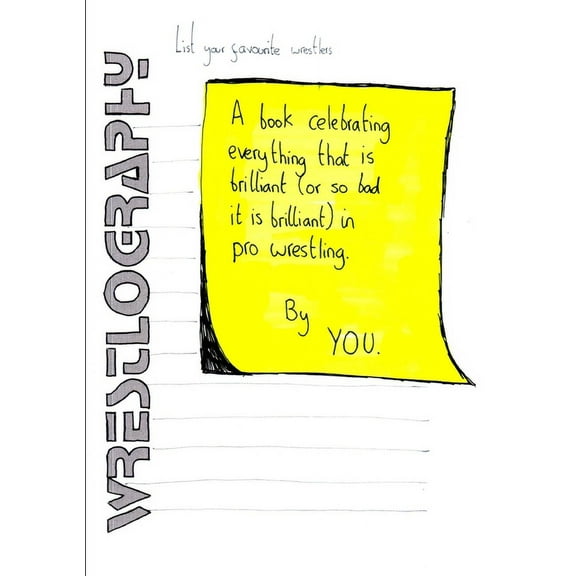 List your favourite wrestlers
WRESTLOGRAPHY
A book celebrating
everything that is
brilliant (or so bad
it is brilliant) in
pro wrestling.
By
YOU.